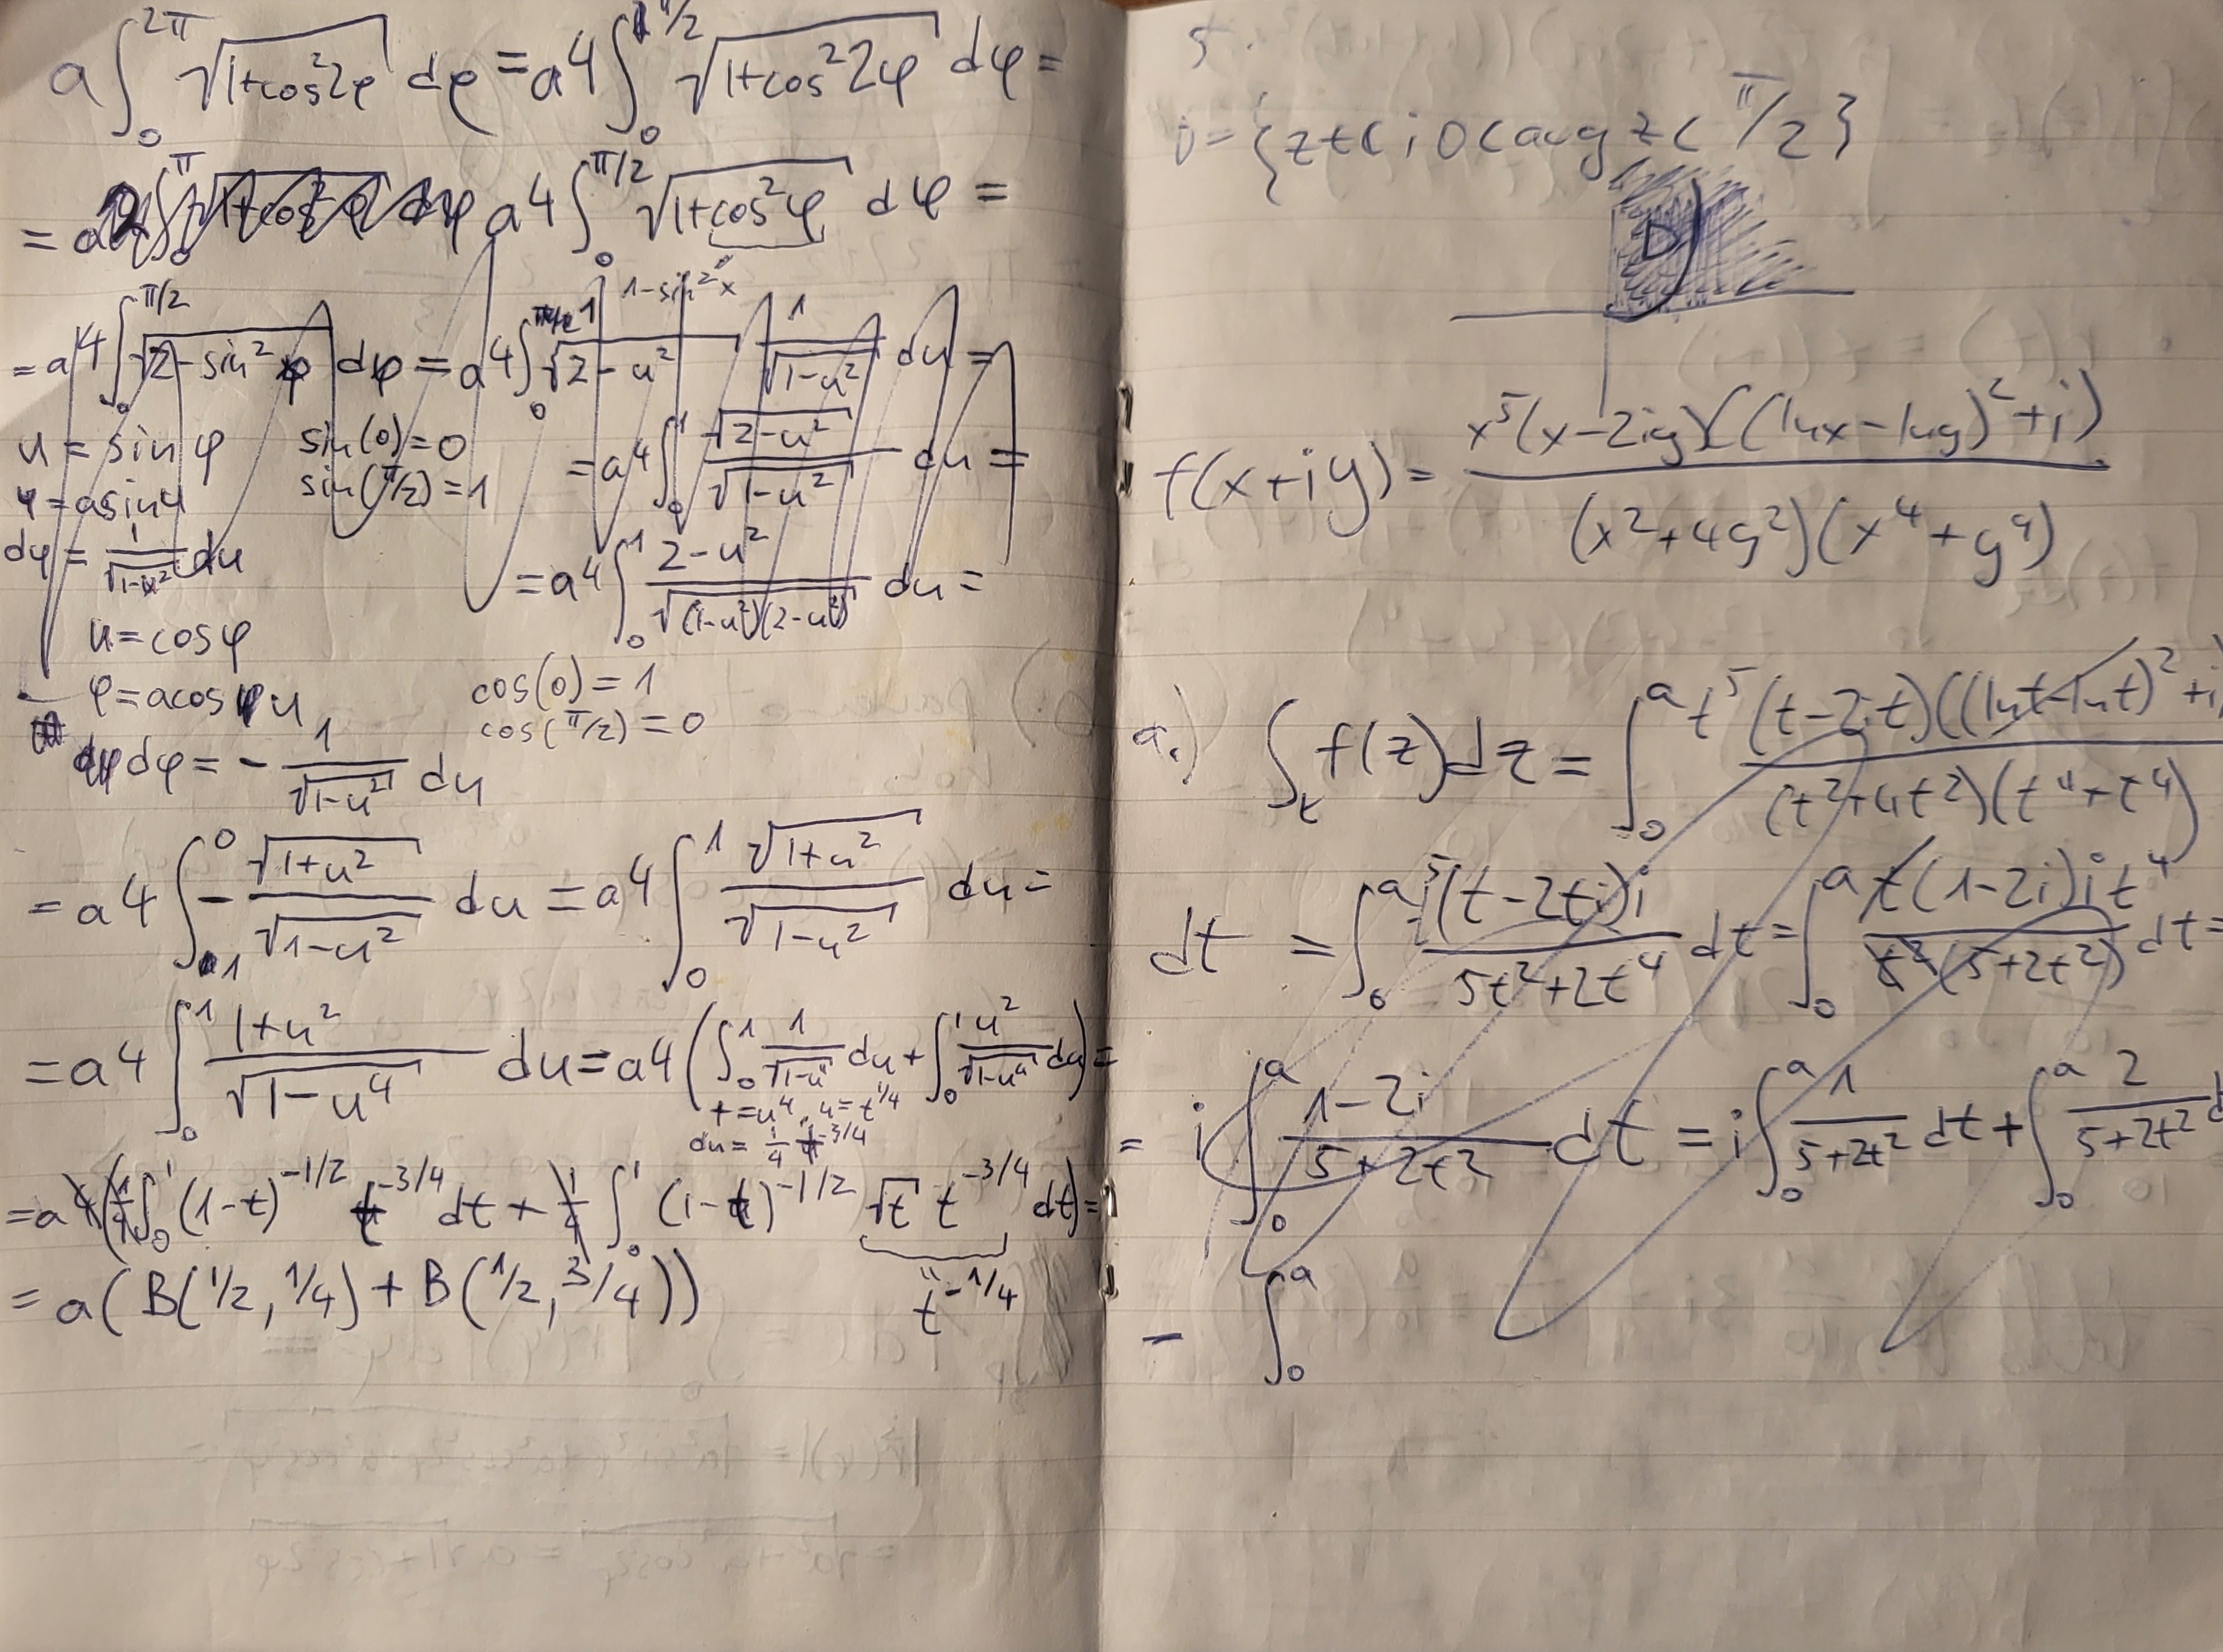 a∫₀^{2π} √(1+cos²2φ) dφ = a4∫₀^{π/2} √(1+cos²2φ) dφ =
= a4∫₀^{π/2} √(1+cos²φ) dφ =
1-sin²x
= a4∫₀^{π/2} √(2-sin²φ) dφ = a4∫₀¹ √(2-u²) 1/√(1-u²) du =
u = sinφ sin(0)=0
φ = asin u sin(π/2)=1 = a4∫₀¹ √(2-u²)/√(1-u²) du =
dφ = 1/√(1-u²) du = a4∫₀¹ (2-u²)/√((1-u²)(2-u²)) du =
u=cosφ
φ=acos u cos(0)=1
cos(π/2)=0
dφ = - 1/√(1-u²) du
= a4∫₁⁰ - √(1+u²)/√(1-u²) du = a4∫₀¹ √(1+u²)/√(1-u²) du =
= a4∫₀¹ (1+u²)/√(1-u⁴) du = a4(∫₀¹ 1/√(1-u⁴) du + ∫₀¹ u²/√(1-u⁴) du) =
t=u⁴, u=t^{1/4}
du = 1/4 t^{-3/4}
= a4(1/4∫₀¹ (1-t)^{-1/2} t^{-3/4} dt + 1/4∫₀¹ (1-t)^{-1/2} √t t^{-3/4} dt) =
= a(B(1/2, 1/4) + B(1/2, 3/4)) t^{-1/4}
5.
D={z∈ℂ; 0<arg z<π/2}
D
f(x+iy) = x⁵(x-2iy)((lnx-lny)²+i) / (x²+4y²)(x⁴+y⁴)
a.) ∫ f(z)dz = ∫₀^a t⁵(t-2it)((lnt-lnt)²+i) / (t²+4t²)(t⁴+t⁴)
dt = ∫₀^a t⁵(t-2ti)i / 5t²+2t⁴ dt = ∫₀^a t(1-2i)i t⁴ / t²(5+2t²) dt =
= i∫₀^a (1-2i)/(5+2t²) dt = i∫₀^a 1/(5+2t²) dt + ∫₀^a 2/(5+2t²) d
- ∫₀^a